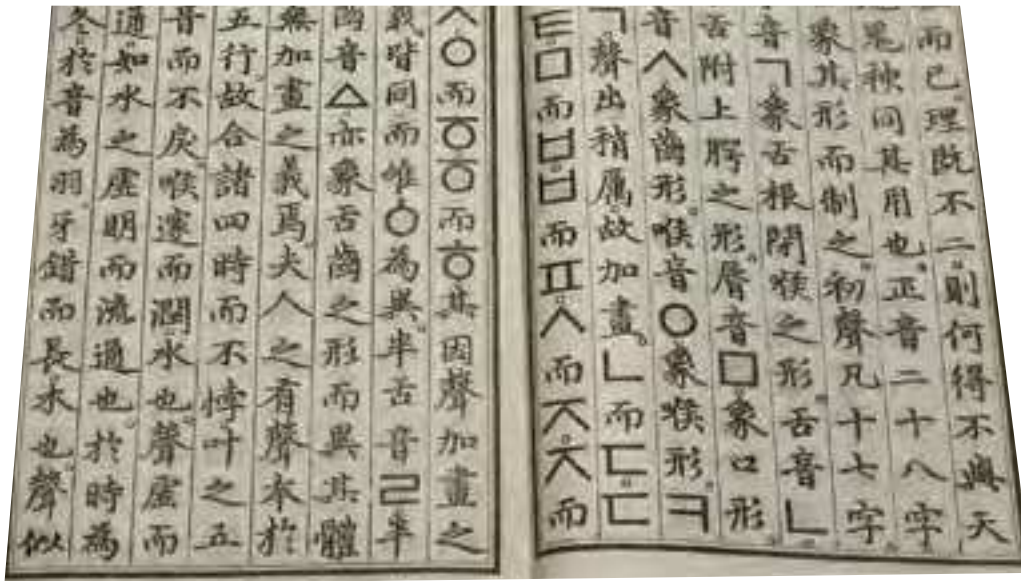 而已。理旣不二。則何得不與天
神同其用也。正音二十八字。
象其形而制之。初聲凡十七字。
音ㄱ。象舌根閉喉之形。舌音ㄴ。
舌附上腭之形。脣音ㅁ。象口形。
音ㅅ。象齒形。喉音ㅇ。象喉形。ㅋ
ㄱ。聲出稍厲。故加畫。ㄴ而ㄷ。ㄷ
ㅌ。ㅁ而ㅂ。ㅂ而ㅍ。ㅅ而ㅈ。ㅈ而
ㅇ而ㆆ。ㆆ而ㅎ。其因聲加畫之
義皆同。而唯ㆁ為異。半舌音ㄹ。半
齒音ㅿ。亦象舌齒之形而異其體。
無加畫之義焉。夫人之有聲本於
五行。故合諸四時而不悖。叶之五
音而不戾。喉邃而潤。水也。聲虛而
通。如水之虛明而流通也。於時為
冬。於音為羽。牙錯而長。木也。聲似